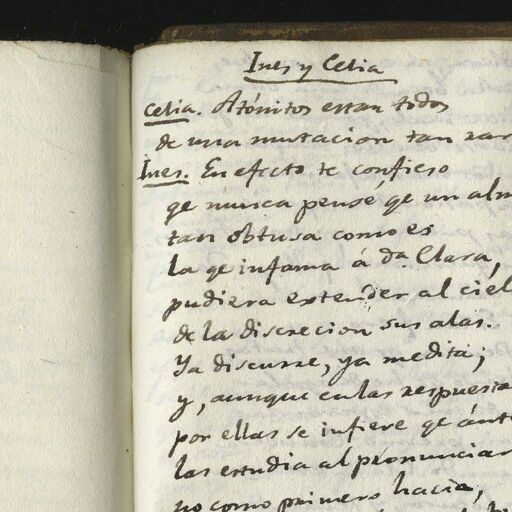 Ines y Celia
Celia. Atónitos estan todos
de una mutacion tan rar
Ines. En efecto te confieso
qe nunca pensé, qe un alm
tan obtusa como es
la qe infama á da. Clara,
pudiera extender al ciel
de la discrecion sus alas.
Ya discurre, ya medita;
y, aunque en las respuesta
por ellas se infiere qe ánt
las estudia al pronunciar
no como primero hacia,